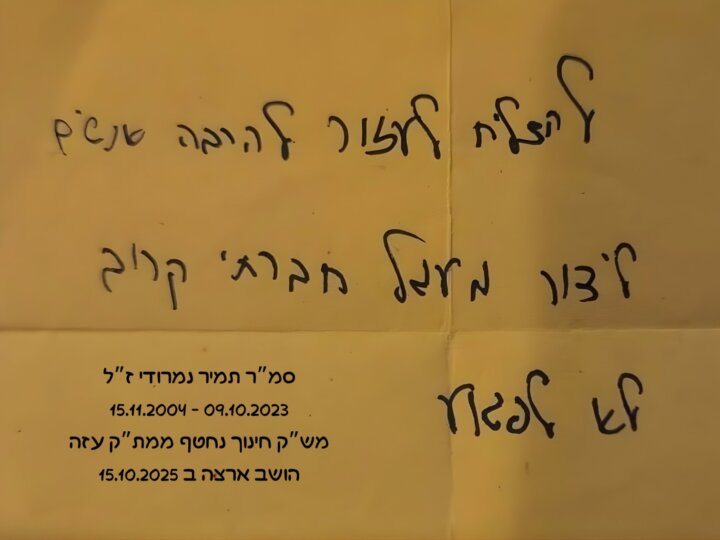 להצליח לעזור להרבה אנשים
ליצור מעגל חברתי קרוב
לא לפגוע
סמ״ר תמיר נמרודי ז״ל
15.11.2004 - 09.10.2023
מש״ק חינוך נחטף ממת״ק עזה
הושב ארצה ב 15.10.2025